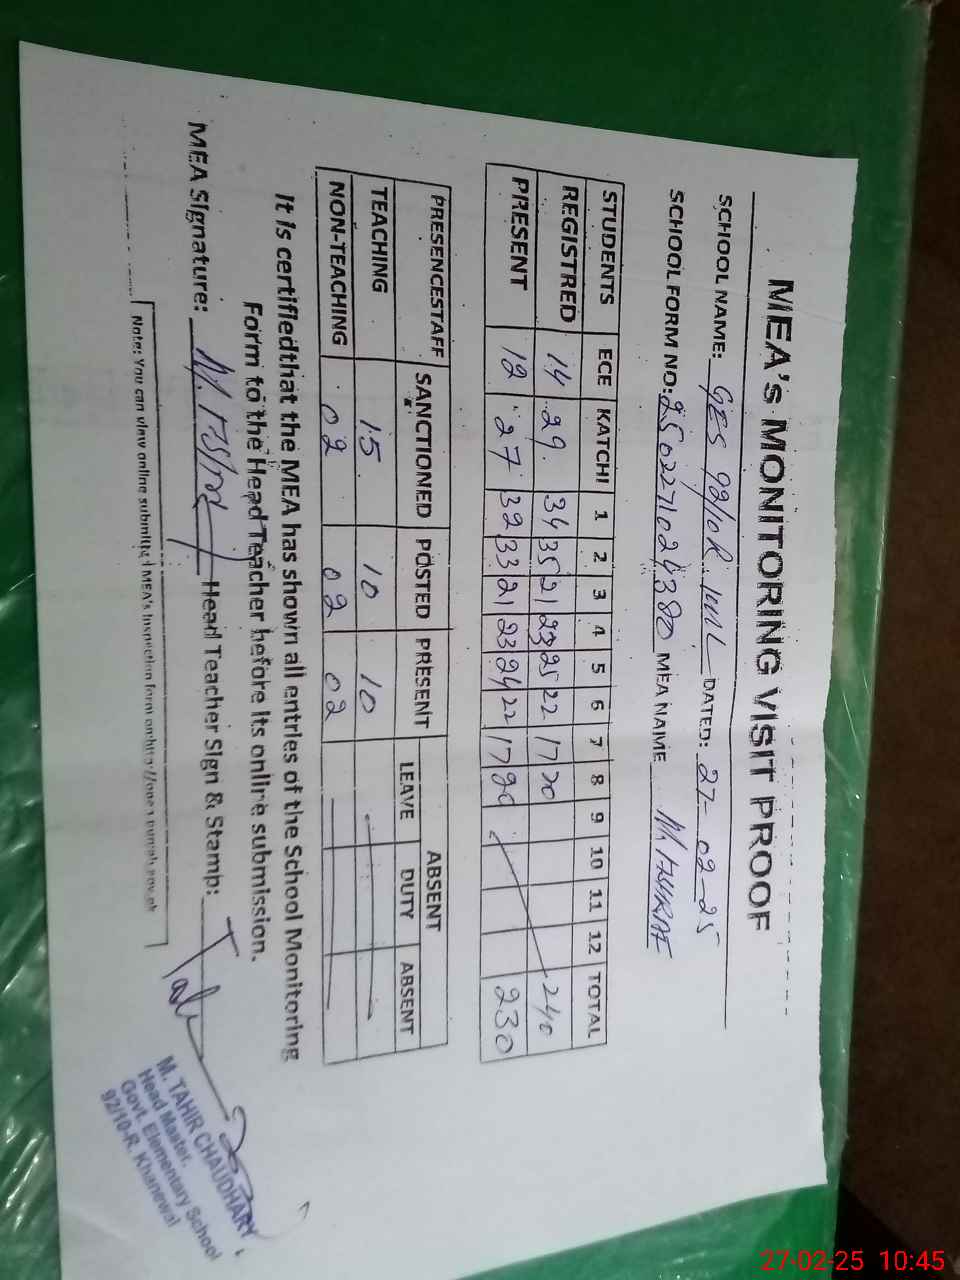 MEA's MONITORING VISIT PROOF
SCHOOL NAME: GES 92/10R. KWL DATED: 27-02-25
SCHOOL FORM NO: 2502271024380 MEA NAME M. ASHRAF
STUDENTS ECE KATCHI 1 2 3 4 5 6 7 8 9 10 11 12 TOTAL
REGISTRED 14 29 34 35 21 23 25 22 17 20 240
PRESENT 12 27 32 33 21 23 24 22 17 20 230
PRESENCESTAFF SANCTIONED POSTED PRESENT ABSENT
LEAVE DUTY ABSENT
TEACHING 15 10 10
NON-TEACHING 02 02 02
It is certifiedthat the MEA has shown all entries of the School Monitoring
Form to the Head Teacher before its online submission.
MEA Signature: Head Teacher Sign & Stamp:
M. TAHIR CHAUDHARY
Head Master.
Govt. Elementary School
92/10-R. Khanewal
Note: You can view online submitted MEA's Inspection form on
27-02-25 10:45